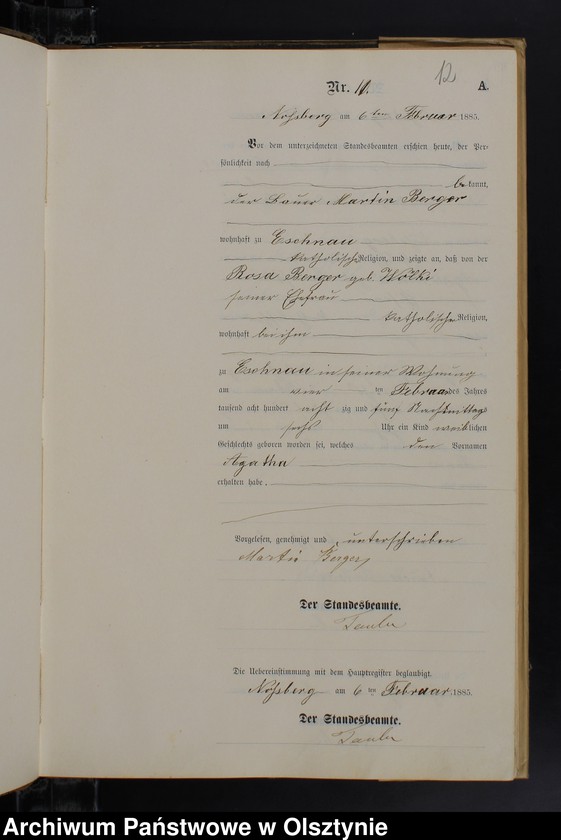 12
Nr. 10. A.
Noßberg am 6ten Februar 1885.
Vor dem unterzeichneten Standesbeamten erschien heute, der Per-
sönlichkeit nach
bekannt,
der Bauer Martin Berger
wohnhaft zu Eschnau
katholische Religion, und zeigte an, daß von der
Rosa Berger geb. Wölki
seiner Ehefrau
katholische Religion,
wohnhaft bei ihm
zu Eschnau in seiner Wohnung
am vier ten Februar des Jahres
tausend acht hundert acht zig und fünf Nachmittags
um sechs Uhr ein Kind weiblichen
Geschlechts geboren worden sei, welches den Vornamen
Agatha
erhalten habe.
Vorgelesen, genehmigt und unterschrieben
Martin Berger
Der Standesbeamte.
Die Uebereinstimmung mit dem Hauptregister beglaubigt.
Noßberg am 6ten Februar 1885.
Der Standesbeamte.
Archiwum Państwowe w Olsztynie